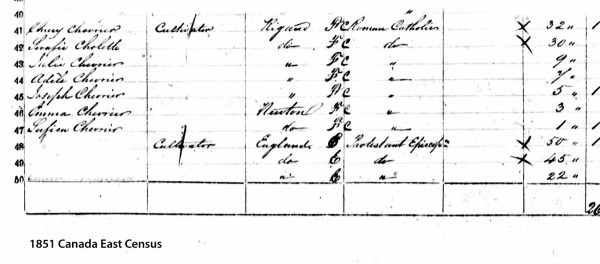 40 "
41 Chevrier Cultivator Rigaud F C Roman Catholic x 32 "
42 Cholette do F C do x 30 "
43 Julie Chevrier " F C " 9 "
44 Adile Chevrier " F C " 7 "
45 Joseph Chevrier " F C " 5 " 1
46 Emma Chevrier Newton F C " 3 "
47 Chevrier do F C " 1 " 1
48 Cultivator England E Protestant Episcop x 50 " 1
49 do E do x 45 "
50 " E " 22 "
26
1851 Canada East Census